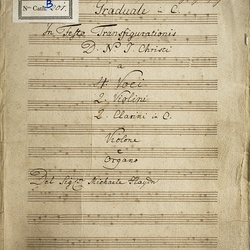 B
Nº Cath. 201.
Graduale in C.
In Festo Transfigurationis
D. N. J. Christi
a
4 Voci
2. Violini
2. Clarini in C.
Violone
e
Organo
Del Sigre Michaele Haydn